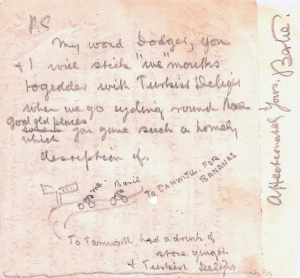 P.S
My word Dodger, you
& I will stick "we" mouths
togedder with Turkish Delight
when we go cycling round
good old places
which you gave such a homely
description of.
me Basil
To TAMWORTH FOR
BANANAS
To Tamworth had a drink of
stone ginger.
& Turkish Delight
Affectionately Yours. Basil.